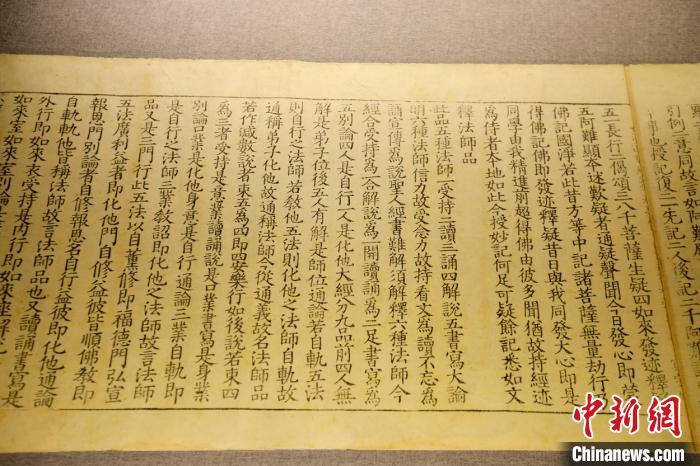 引例二意同故言如
五一長行二偈頌三八千菩薩生疑四如來發迹釋
五阿難顯本述歎疑者通疑聲聞今日發心即當
佛記國淨若此昔方等中記諸菩薩無量劫行
得佛記佛即發迹釋疑昔日與我同發大心即是
同學由我精進前超得佛由彼多聞猶故持經迹
為侍者本地如此今授妙記何足可疑餘記悉如文
釋法師品
此品五種法師一受持二讀三誦四解說五書寫大論
明六種法師信力故受念力故持看文為讀不忘為
誦宣傳為說聖人經書難解須解釋六種法師今
經合受持為一合解說為一開讀誦為二足書寫為
五別論四人是自行一人是化他大經分九品前四人無
解是弟子位後五人有解是師位通論若自軌五法
則自行之法師若教他五法則化他之法師自軌故
通稱弟子化他故通稱法師今從通義故名法師品
若作減數說者束五為四即安樂行如後說若束四
為三者受持是意業讀誦說是口業書寫是身業
別論口業是化他身意是自行通論三業自軌即
是自行之法師三業教詔即化他之法師故言法師
品又是三門行此五法以自薰修即福德門弘宣
五法廣利益者即化他門自修益彼皆順佛教即
報恩門別論者自修報恩名自行益彼即化他通論
自軌軌他皆稱法師故言法師品也又讀誦書寫是
外行即如來衣受持是內行即如
中新网
Chinanews.com